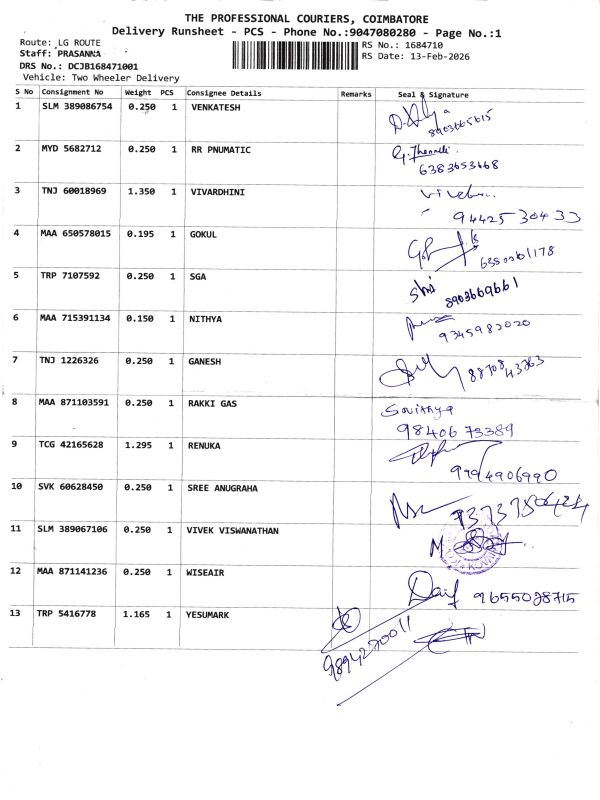 THE PROFESSIONAL COURIERS, COIMBATORE
Delivery Runsheet - PCS - Phone No.:9047080280 - Page No.:1
Route: LG ROUTE
Staff: PRASANNA
DRS No.: DCJB168471001
Vehicle: Two Wheeler Delivery
RS No.: 1684710
RS Date: 13-Feb-2026
S No Consignment No Weight PCS Consignee Details Remarks Seal & Signature
1 SLM 389086754 0.250 1 VENKATESH
8903665615
2 MYD 5682712 0.250 1 RR PNUMATIC
6383653668
3 TNJ 60018969 1.350 1 VIVARDHINI
94425 30433
4 MAA 650578015 0.195 1 GOKUL
5 TRP 7107592 0.250 1 SGA
8903669661
6 MAA 715391134 0.150 1 NITHYA
9345982020
7 TNJ 1226326 0.250 1 GANESH
88708 43763
8 MAA 871103591 0.250 1 RAKKI GAS
98406 73389
9 TCG 42165628 1.295 1 RENUKA
9994906990
10 SVK 60628450 0.250 1 SREE ANUGRAHA
11 SLM 389067106 0.250 1 VIVEK VISWANATHAN
12 MAA 871141236 0.250 1 WISEAIR
9655028715
13 TRP 5416778 1.165 1 YESUMARK
9894270011